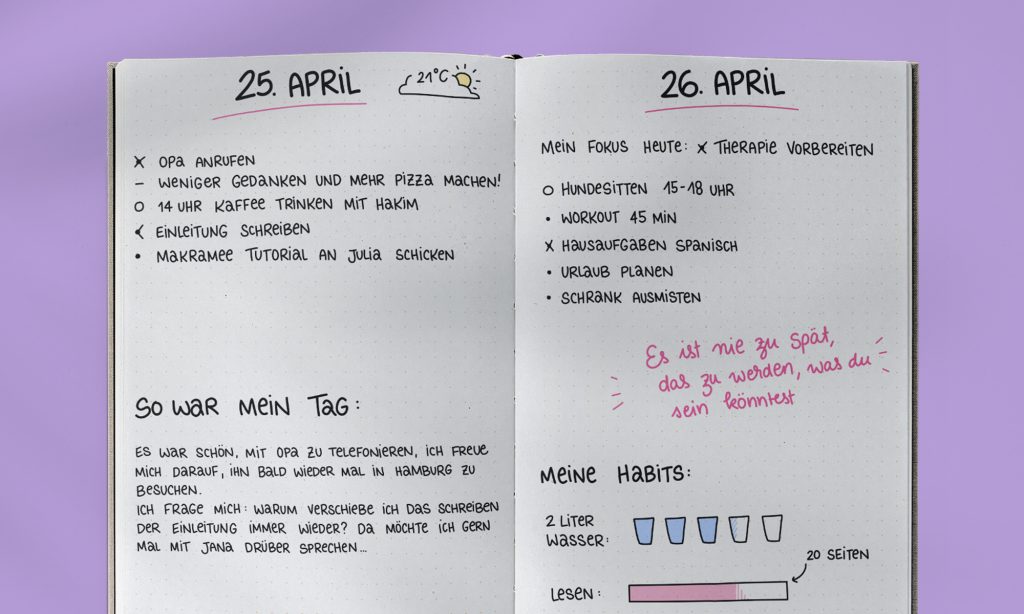 25. APRIL
21°C
x OPA ANRUFEN
– WENIGER GEDANKEN UND MEHR PIZZA MACHEN!
o 14 UHR KAFFEE TRINKEN MIT HAKIM
< EINLEITUNG SCHREIBEN
• MAKRAMEE TUTORIAL AN JULIA SCHICKEN
SO WAR MEIN TAG:
ES WAR SCHÖN, MIT OPA ZU TELEFONIEREN, ICH FREUE
MICH DARAUF, IHN BALD WIEDER MAL IN HAMBURG ZU
BESUCHEN.
ICH FRAGE MICH: WARUM VERSCHIEBE ICH DAS SCHREIBEN
DER EINLEITUNG IMMER WIEDER? DA MÖCHTE ICH GERN
MAL MIT JANA DRÜBER SPRECHEN...
26. APRIL
MEIN FOKUS HEUTE: x THERAPIE VORBEREITEN
o HUNDESITTEN 15-18 UHR
• WORKOUT 45 MIN
x HAUSAUFGABEN SPANISCH
• URLAUB PLANEN
• SCHRANK AUSMISTEN
Es ist nie zu spät,
das zu werden, was du
sein könntest
MEINE HABITS:
2 LITER
WASSER:
20 SEITEN
LESEN: